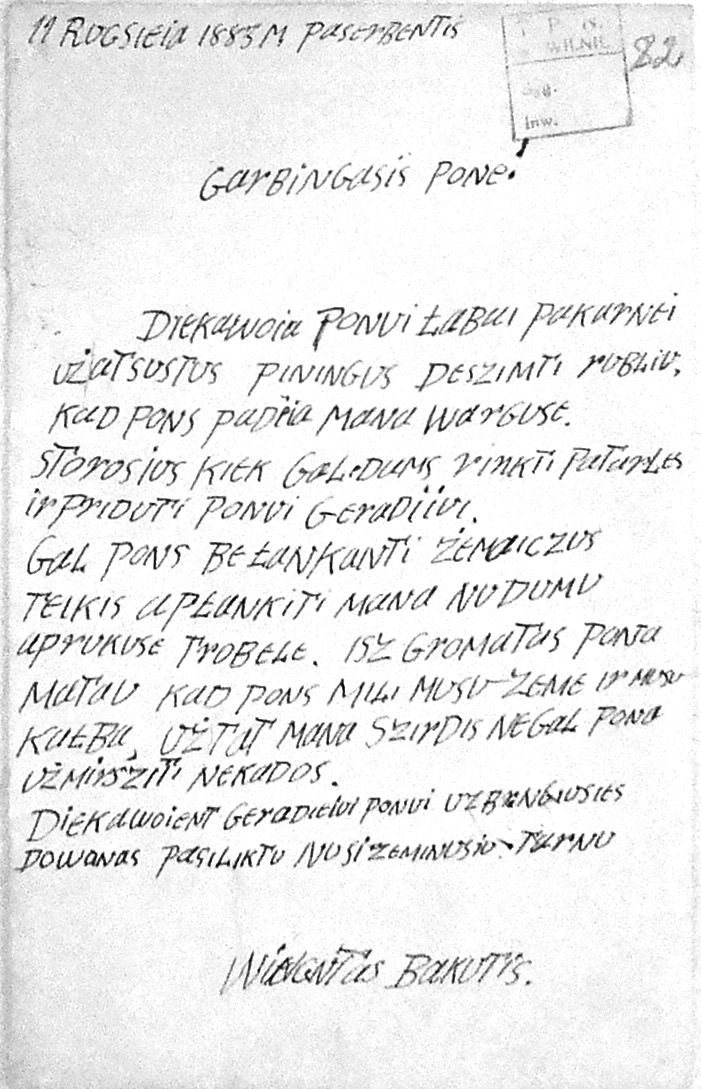 11 RUGSIEIA 1883 M PASERBENTIS
T. P. N.
W WILNIE
Inw.
82
GARBINGASIS PONE!
DIEKAWOIU PONUI ŁABAI PAKARNEI
UŻATSUSTUS PININGUS DESZIMTI RUBLIU,
KAD PONS PADĖIA MANA WARGUSE.
STOROSIUS KIEK GALEDUMS RINKTI PATARLES
IR PRIDUTI PONUI GERADIIVI.
GAL PONS BEŁANKANTI ŻEMAICZUS
TEIKIS APŁANKITI MANA NU DUMU
APRUKUSE TROBELE. ISZ GROMATAS PONA
MATAU KAD PONS MILI MUSU ZEME IR MUSU
KAŁBA, UŻTAT MANA SZIRDIS NEGAL PONA
UŻMIRSZITI NEKADOS.
DIEKAWOIENT GERADIEIUI PONUI UZ BRANGIUSIES
DOWANAS PASILIKTU NUSIZEMINUSIU TARNU
WINCNTAS BAKUTIS.